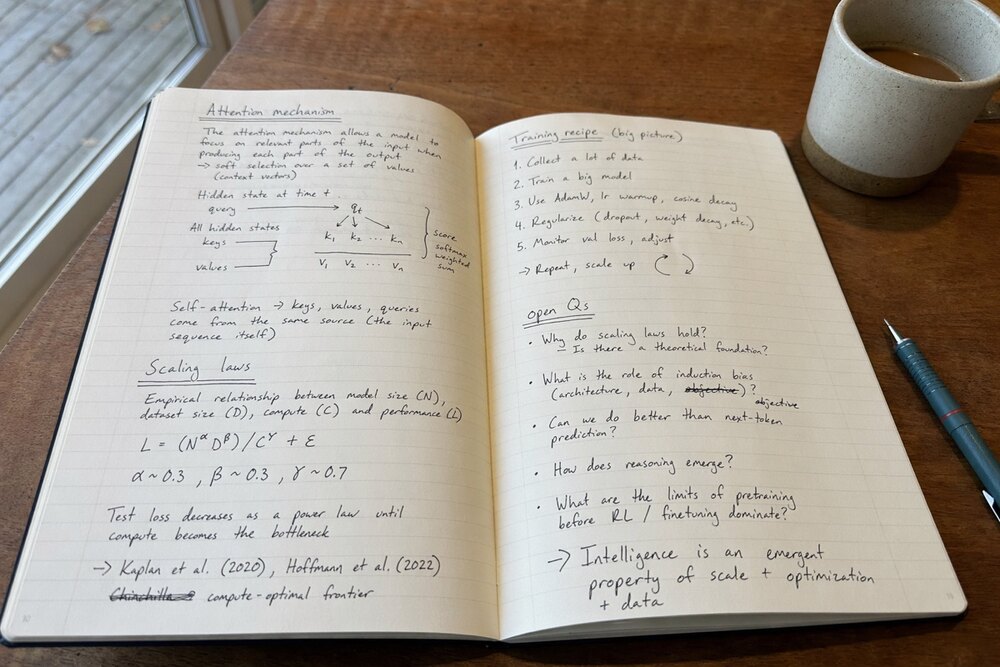 Attention mechanism
The attention mechanism allows a model to
focus on relevant parts of the input when
producing each part of the output
→ soft selection over a set of values
(context vectors)
Hidden state at time t
query → qt
All hidden states
keys
k1 k2 ... kn
values
v1 v2 ... vn
score
softmax
weighted
sum
Self-attention → keys, values, queries
come from the same source (the input
sequence itself)
Scaling laws
Empirical relationship between model size (N),
dataset size (D), compute (C) and performance (L)
L = (N^α D^β)/C^γ + ε
α ~ 0.3, β ~ 0.3, γ ~ 0.7
Test loss decreases as a power law until
compute becomes the bottleneck
→ Kaplan et al. (2020), Hoffmann et al. (2022)
Chinchilla compute-optimal frontier
10
Training recipe (big picture)
1. Collect a lot of data
2. Train a big model
3. Use AdamW, lr warmup, cosine decay
4. Regularize (dropout, weight decay, etc.)
5. Monitor val loss, adjust
→ Repeat, scale up
open Qs
• Why do scaling laws hold?
– Is there a theoretical foundation?
• What is the role of induction bias
(architecture, data, objective)?
objective
• Can we do better than next-token
prediction?
• How does reasoning emerge?
• What are the limits of pretraining
before RL / finetuning dominate?
→ Intelligence is an emergent
property of scale + optimization
+ data